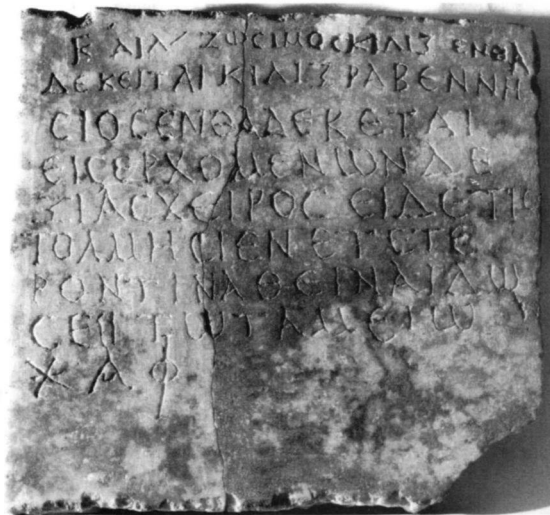 Κ ΑΙΛ ΖΩСΙΜΟС ΚΙΛΙΞ ΕΝΘΑ
ΔΕ ΚΕΙΤΑΙ ΚΙΛΙΞ ΡΑΒΕΝΝΗ
СΙΟС ΕΝΘΑΔΕ ΚΕΤΑΙ
ΕΙСΕΡΧΟΜΕΝΩΝ ΔΕ
ΞΙΑС ΧΕΙΡΟС ΕΙ ΔΕ ΤΙС
ΤΟΛΜΗСΙ ΕΝ ΕΤΕΡΟΝ
ΤΙΝΑ ΘΕΙΝΑΙ ΔΩ
СΕΙ ΤΩ ΤΑΜΕΙΩ
Χ Α Φ